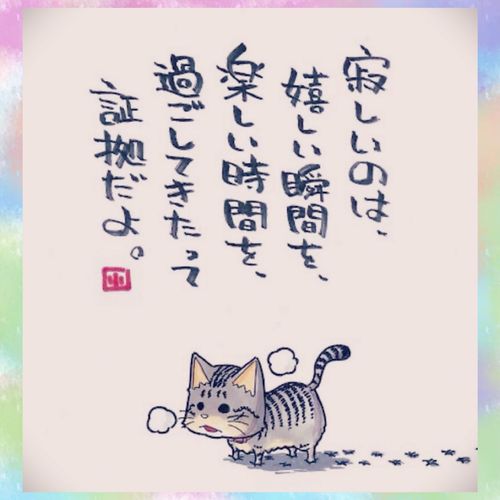 寂しいのは、
嬉しい瞬間を、
楽しい時間を、
過ごしてきたって
証拠だよ。